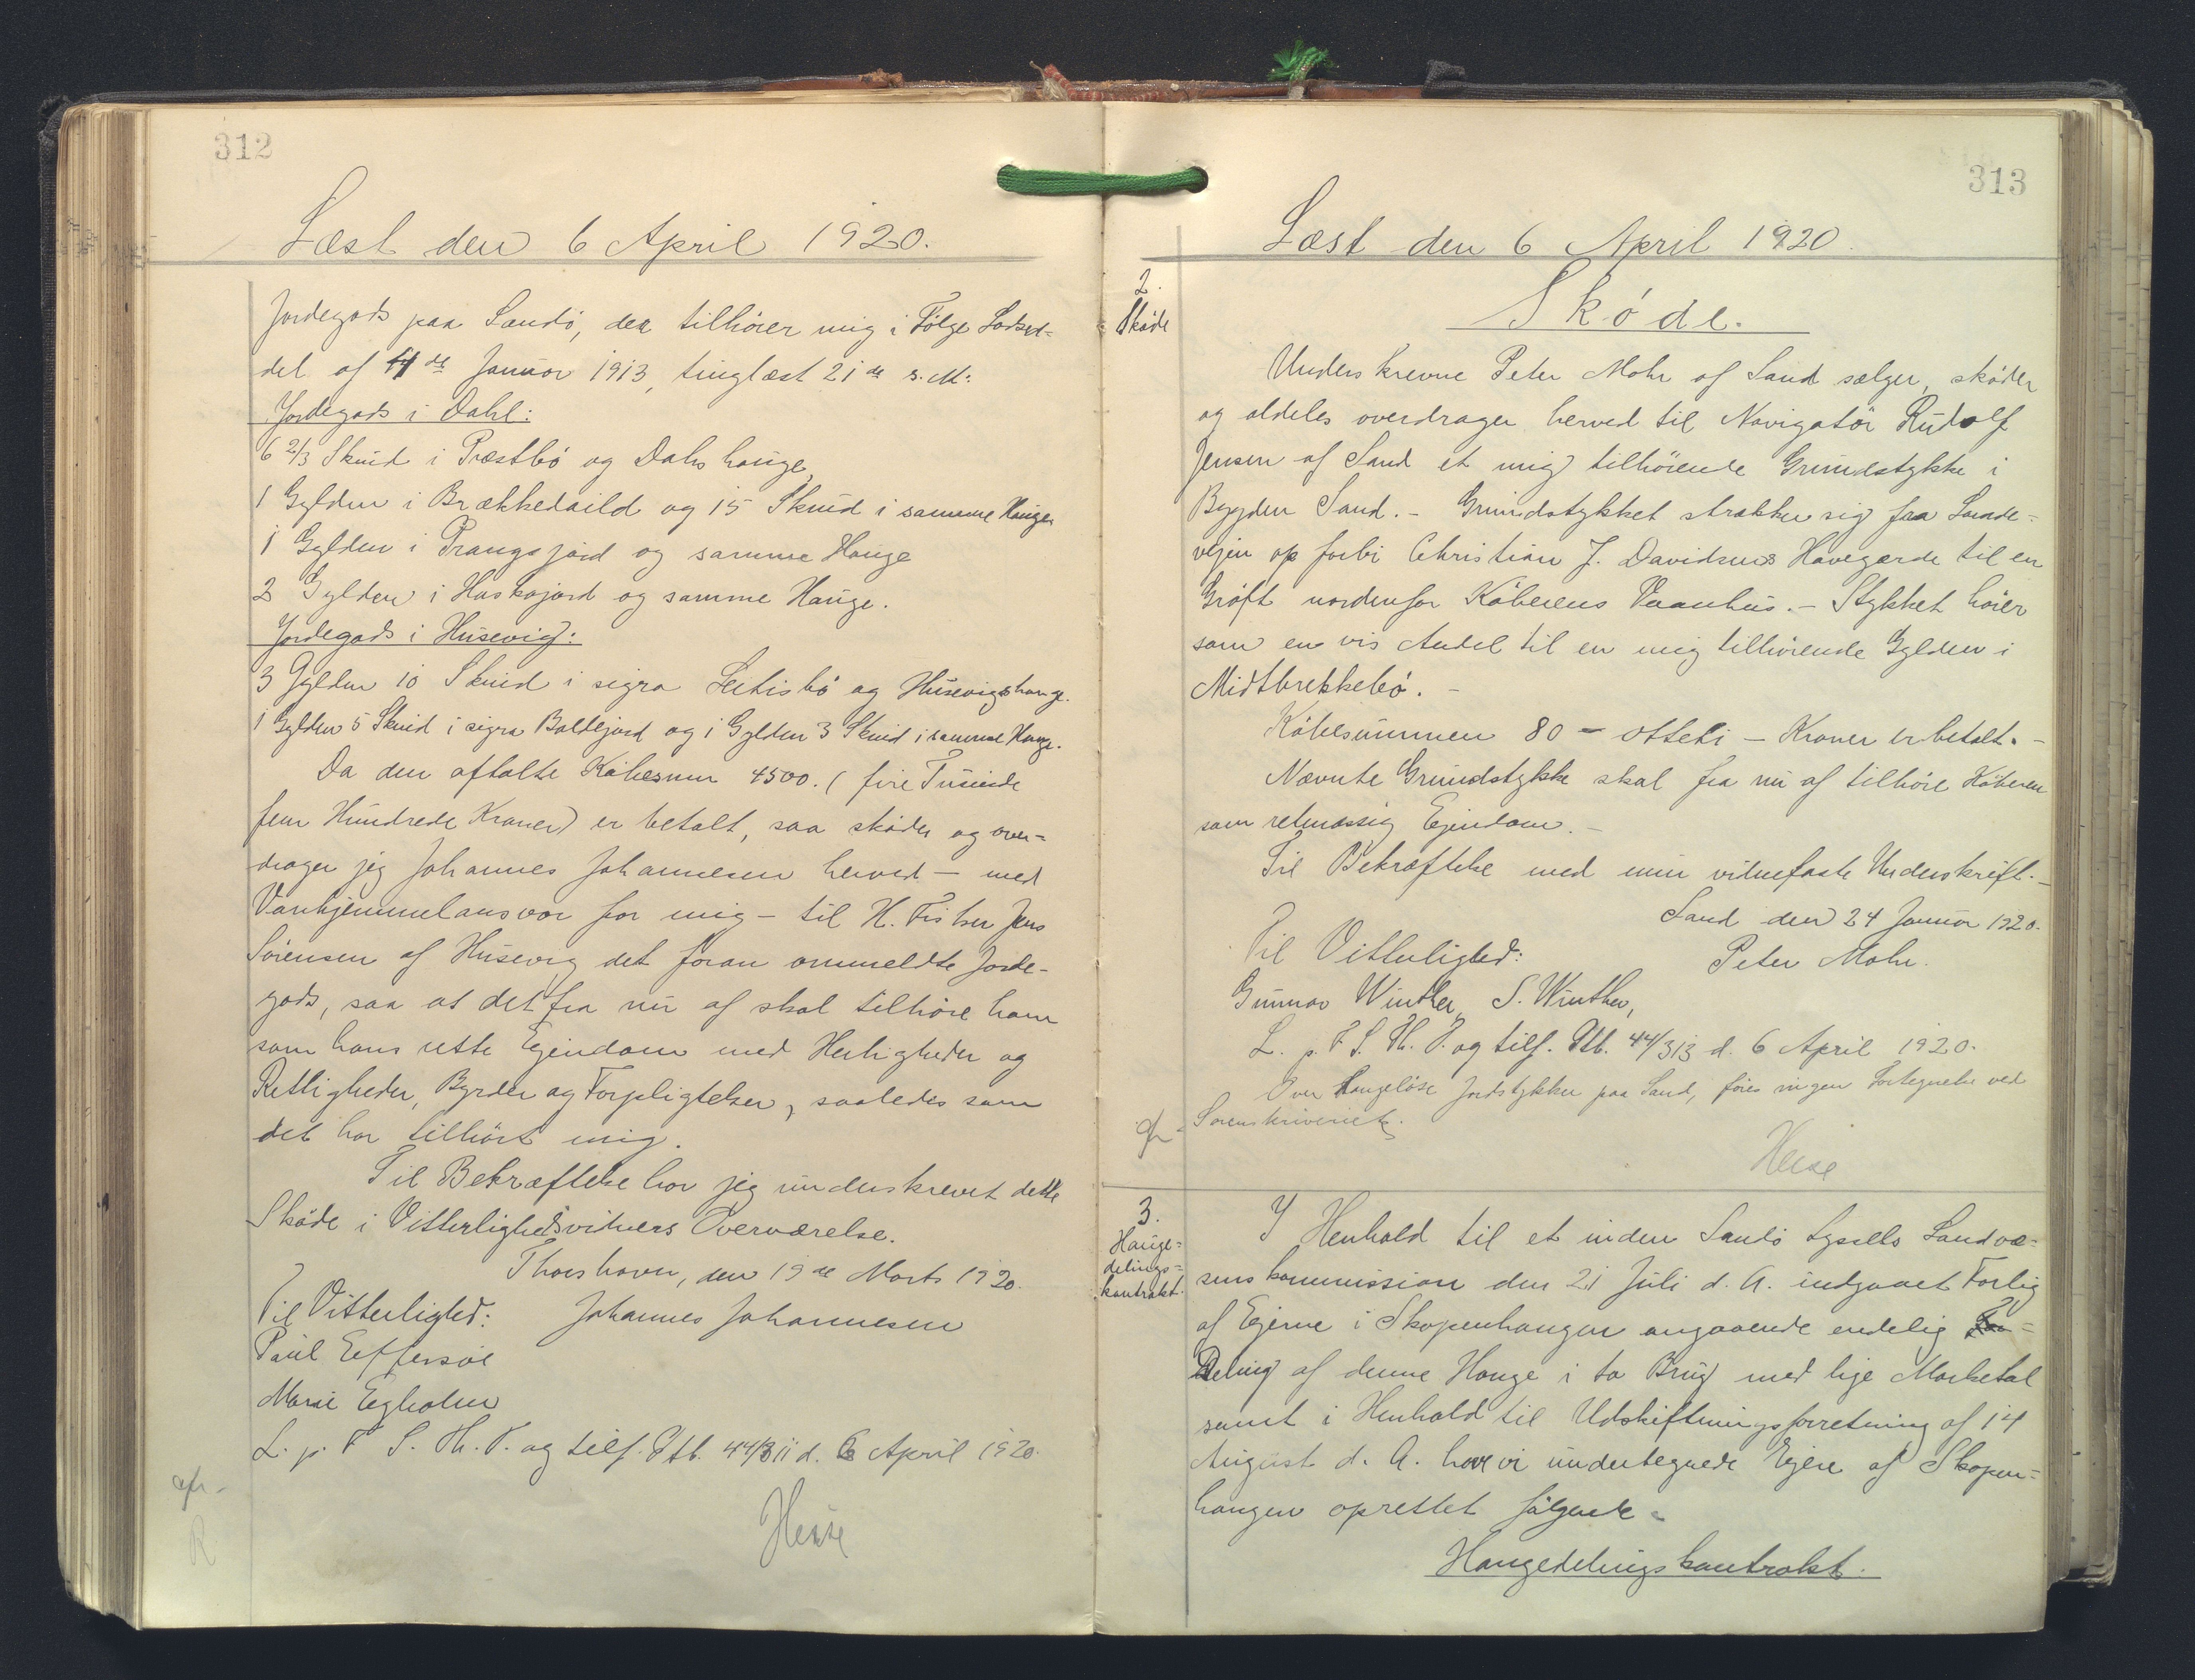 312
Læst den 6 April 1920.
Jordegods paa Sandö, der tilhörer mig i Fölge Lodsed-
del af 11de Januar 1913, tinglæst 21de s. M:
Jordegods i Dahl:
6 2/3 Skind i Præstbö og Dals hauge,
1 Gylden i Brækkedaild og 15 Skind i samme Hauge
1 Gylden i Prangsjord og samme Hauge
2 Gylden i Huskajord og samme Hauge.
Jordegods i Husevig:
3 Gylden 10 Skind i sigra Leitisbö og Husevigshauge.
1 Gylden 5 Skind i sigra Baldejord og 1 Gylden 3 Skind i samme Hauge.
Da den aftalte Köbesum 4500. (fire Tusinde
fem Hundrede Kroner) er betalt, saa sköder og over-
drager jeg Johannes Johannesen herved – med
Vanhjemmelansvar for mig – til H. Fisker Jens
Sörensen af Husevig det foran ommeldte Jorde-
gods, saa at det fra nu af skal tilhöre ham
som hans rette Ejendom med Herligheder og
Rettigheder, Byrder og Forpligtelser, saaledes som
det har tilhört mig.
Til Bekræftelse har jeg underskrevet dette
Sköde i Vitterlighedsvidners Overværelse.
Thorshavn, den 19de Marts 1920.
Til Vitterlighed: Johannes Johannesen
Paul Effersöe
Marie Egholm
L. p. F S. Th. P. og tilf. Ptb. 44/311 d. 6 April 1920.
afr-
Heise
R
313
Læst den 6 April 1920.
2.
Sköde
Sköde.
Underskrevne Peter Mohr af Sand sælger, sköder
og aldeles overdrager herved til Navigatör Rudolf
Jensen af Sand et mig tilhörende Grundstykke i
Bygden Sand. – Grundstykket strækker sig fra Lande-
vejen op forbi Christian J. Davidsens Havegærde til en
Gröft nordenfor Köberens Vaanhus. – Stykket hörer
som en vis Andel til en mig tilhörende Gylden i
Midtbrekkebö. –
Köbesummen 80 – otteti – Kroner er betalt. –
Nævnte Grundstykke skal fra nu af tilhöre Köberen
som retmæssig Ejendom. –
Til Bekræftelse med min vitnefaste Underskrift. –
Sand den 24 Januar 1920.
Til Vitterlighed: Peter Mohr.
Gunnar Winther, S. Winther,
L. p. F S. Th. P. og tilf. Ptb. 44/313 d. 6 April 1920.
Over haugelöse Jordstykker paa Sand, föres ingen Fortegnelse ved
Sorenskriveriet.
afr-
Heise
3.
Hauge-
delings-
kontrakt.
I Henhold til et inden Sandö Syssels Landvæ-
senskommission den 21 Juli d. A. indgaaet Forlig
af Ejerne i Skopenhaugen angaaende endelig
Deling af denne Hauge i to Brug med lige Marketal
samt i Henhold til Udskiftningsforretning af 14
August d. A. have vi undertegnede Ejere af Skopen-
haugen oprettet fölgende
Haugedelingskontrakt.